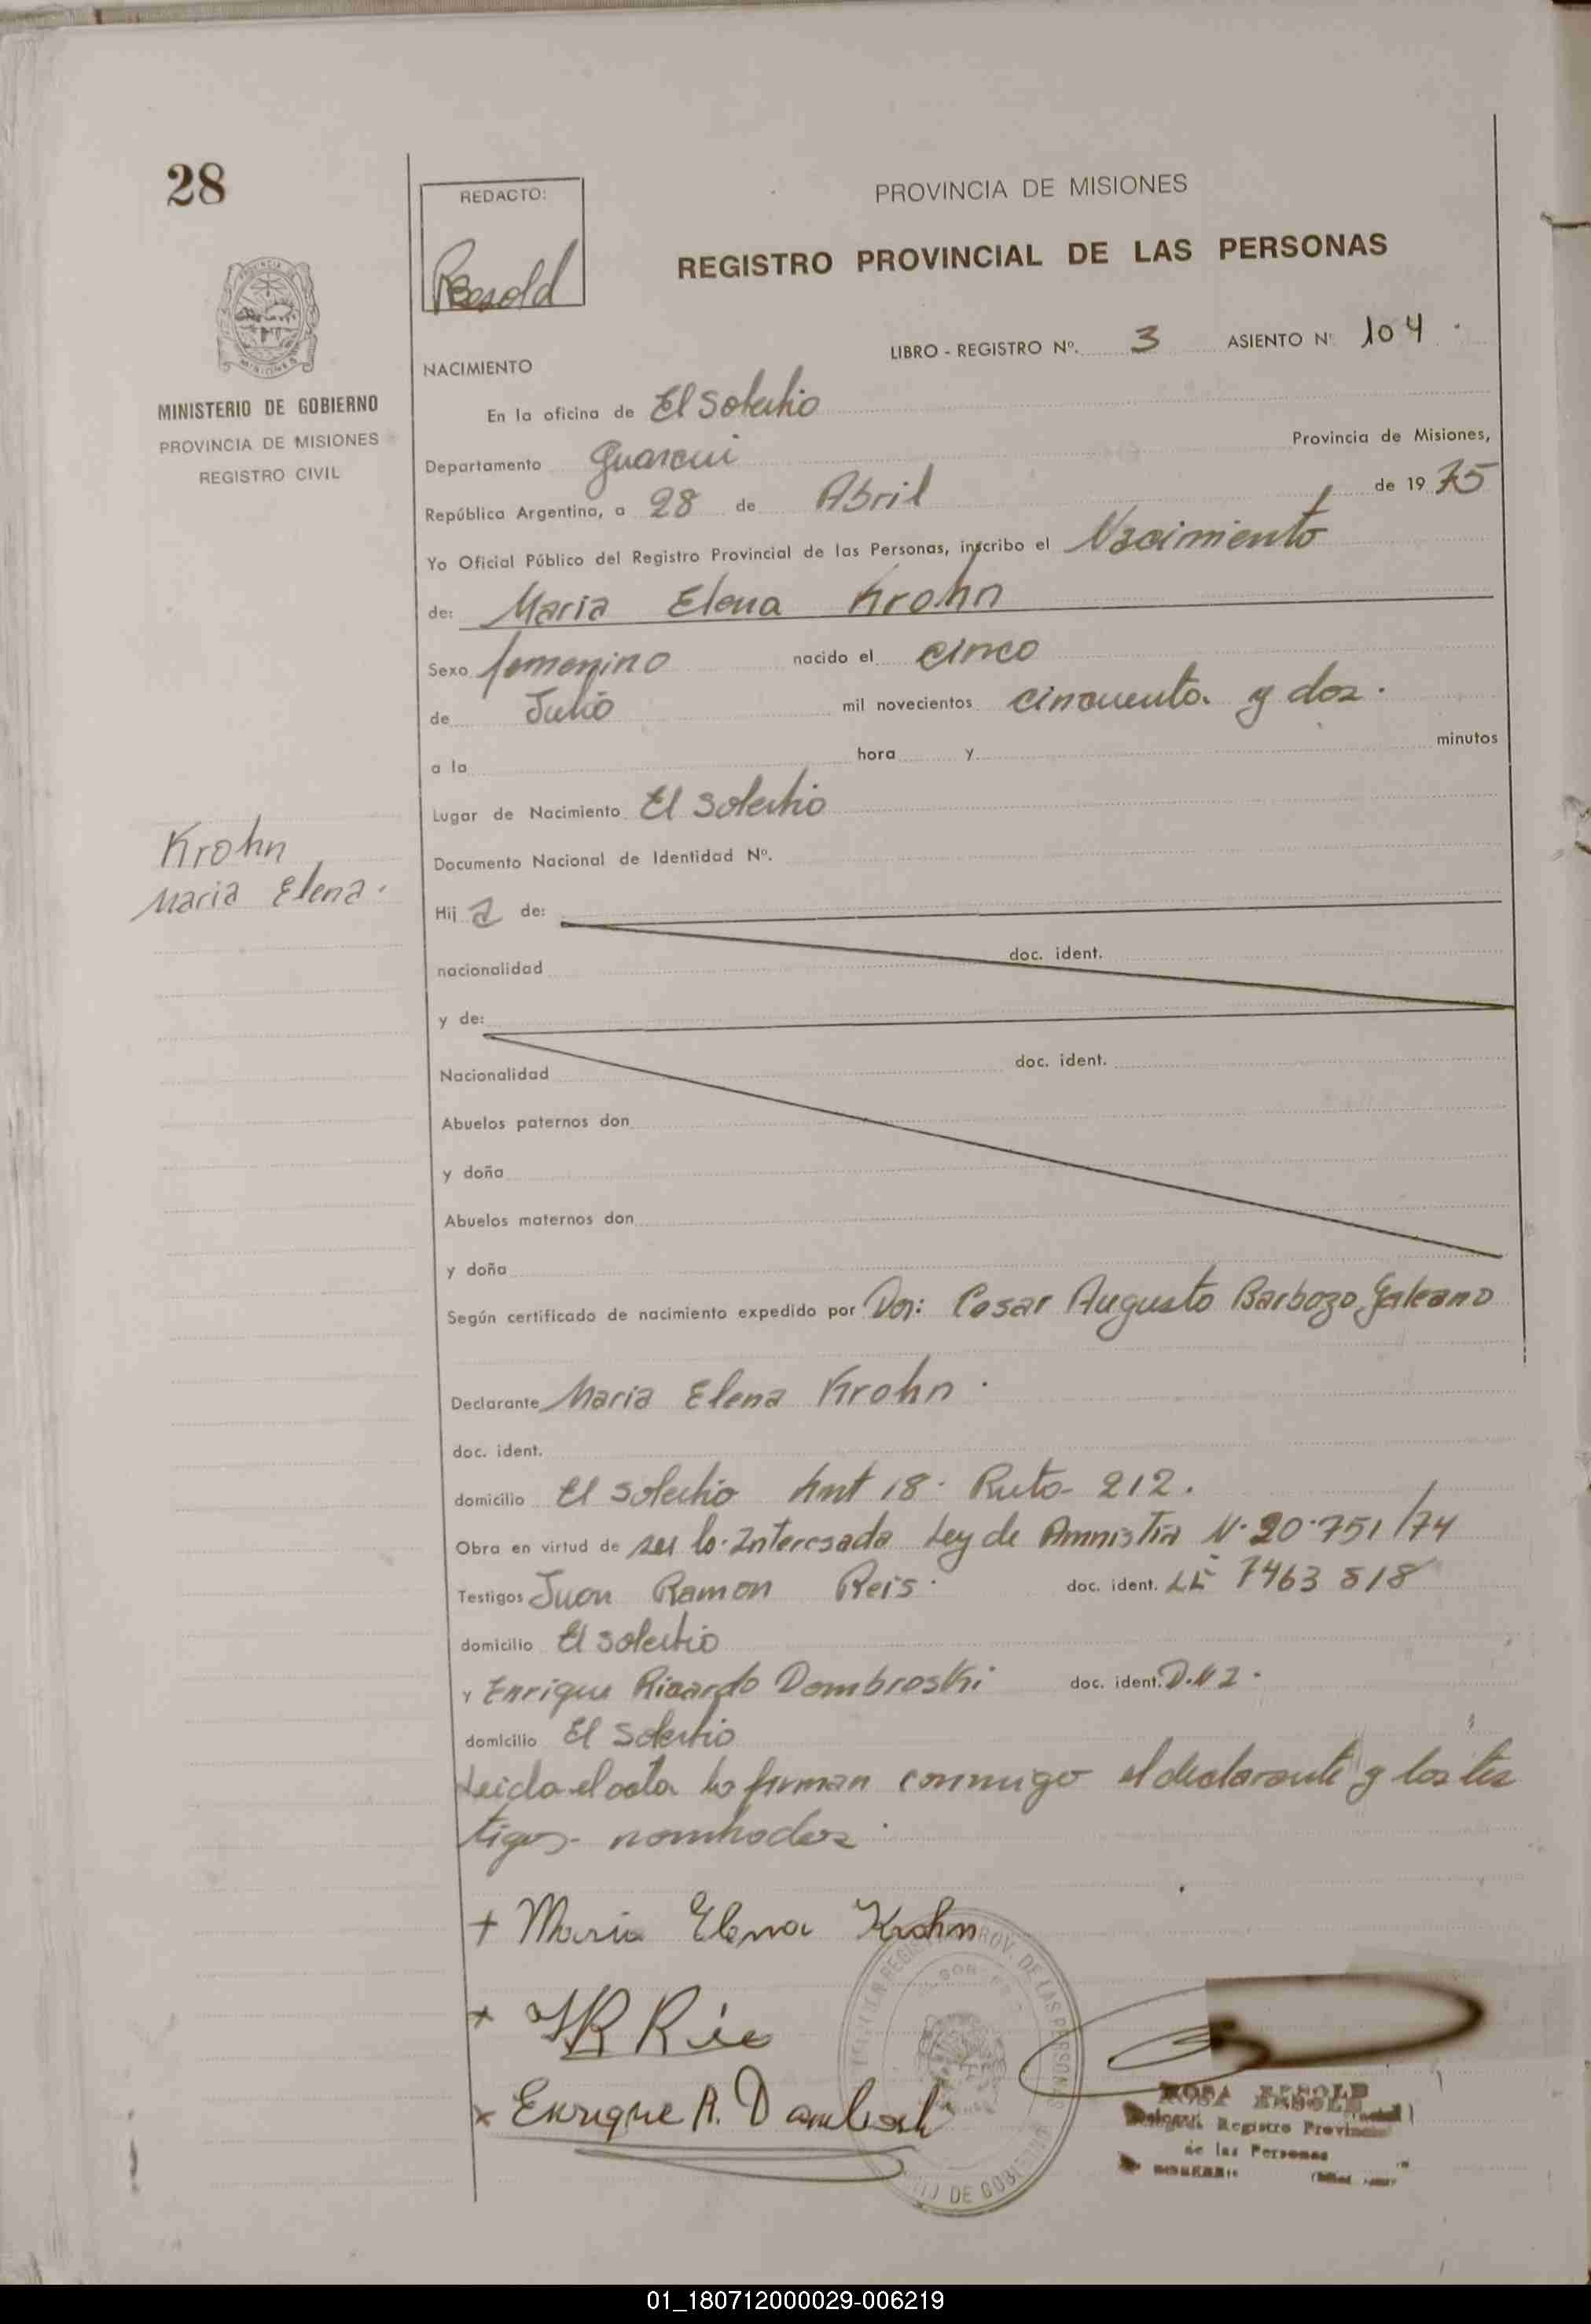 28
REDACTO:
Besold
PROVINCIA DE MISIONES
REGISTRO PROVINCIAL DE LAS PERSONAS
LIBRO - REGISTRO Nº. 3 ASIENTO Nº 104.
MINISTERIO DE GOBIERNO
PROVINCIA DE MISIONES
REGISTRO CIVIL
NACIMIENTO
En la oficina de El Soberbio
Departamento Guarani Provincia de Misiones,
República Argentina, a 28 de Abril de 1975
Yo Oficial Público del Registro Provincial de las Personas, inscribo el Nacimiento
de: Maria Elena Krohn
Sexo femenino nacido el cinco
de Julio mil novecientos cincuenta y dos.
a la hora y minutos
Lugar de Nacimiento El Soberbio
Krohn
Maria Elena.
Documento Nacional de Identidad Nº.
Hij a de:
nacionalidad doc. ident.
y de:
Nacionalidad doc. ident.
Abuelos paternos don
y doña
Abuelos maternos don
y doña
Según certificado de nacimiento expedido por Dor: Cesar Augusto Barbozo Galeano
Declarante Maria Elena Krohn.
doc. ident.
domicilio El Soberbio kmt 18. Ruta 212.
Obra en virtud de ser la Interesada Ley de Amnistia N. 20.751/74
Testigos Juan Ramon Reis. doc. ident. LE 7463 518
domicilio El Soberbio
Y Enrique Ricardo Dombroski doc. ident. D.N I.
domicilio El Soberbio
Leida el acta la firman conmigo el declarante y los tes
tigos nombrados.
+ Maria Elena Krohn
+ JR Ries
x Enrique R.
ROSA BESOLD
Registro Provincial
de las Personas
DE LAS PERSONAS
DE GOBIERNO
01_180712000029-006219